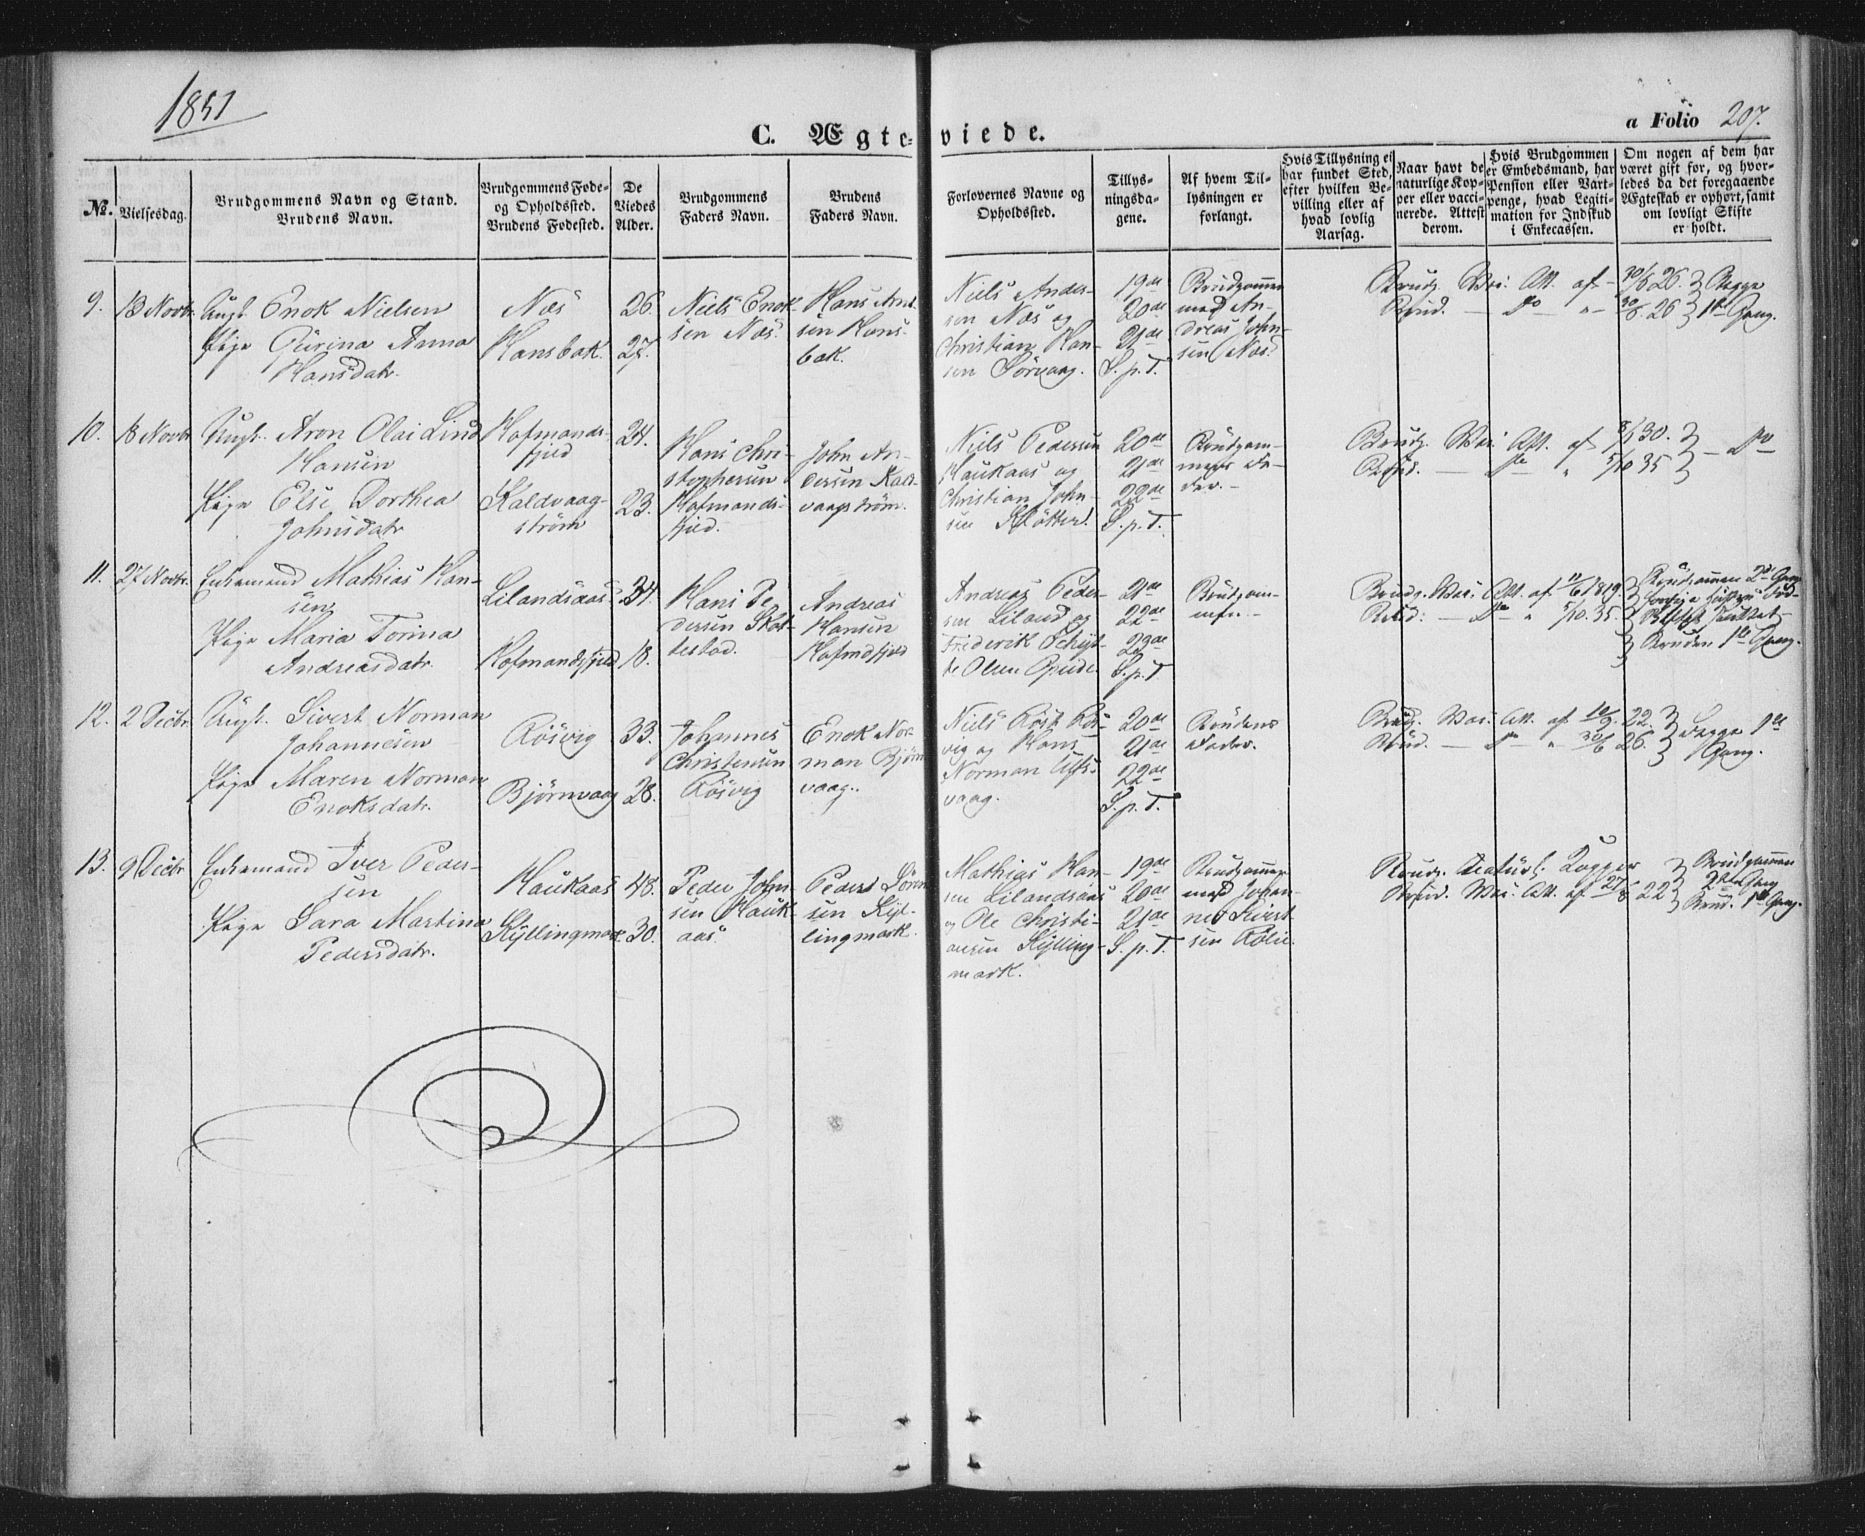 1851
C. Ægte-
viede.
a Folio 207.
No.
Vielsesdag.
Brudgommens Navn og Stand.
Brudens Navn.
Brudgommens Føde-
og Opholdssted.
Brudens Fødested.
De
Viedes
Alder.
Brudgommens
Faders Navn.
Brudens
Faders Navn.
Forlovernes Navne og
Opholdssted.
Tillys-
ningsda-
gene.
Af hvem Til-
lysningen er
forlangt.
Hvis Tillysning ei
har fundet Sted,
efter hvilken Be-
villing eller af
hvad lovlig
Aarsag.
Naar havt de
naturlige Kop-
per eller vacci-
nerede. Attest
derom.
Hvis Brudgommen
er Embedsmand, har
Pension eller Vart-
penge, hvad Legiti-
mation for Indskud
i Enkecassen.
Om nogen af dem har
været gift før, og hvor-
ledes da det foregaaende
Ægteskab er ophørt, samt
om lovligt Skifte
er holdt.
9.
13 Novbr.
Ungk. Enok Nielsen
Pige Gurina Anna
Hansdatr.
Næs
Hansbak.
26.
27.
Niels Enok-
sen Næs.
Hans And.
sen Hans-
bak.
Niels Ander-
sen Næs og
Christian Han-
sen Sörvaag.
19de
20de
21de
S. p. T.
Brudgommen
med An-
dreas John-
sen Næs.
Brudg. Vac. Att. af 30/6 26.
Brud. — Do — " 30/6 26
Begge
1ste Gang.
10.
18 Novbr.
Ungk. Aron Olai Lind
Hansen
Pige Else Dorthea
Johnsdatr
Hofmands-
fjeld
Kaldvaag-
ström
24.
23.
Hans Chri-
stophersen
Hofmands-
fjeld.
John An-
dersen Kald-
vaagström.
Niels Pedersen
Haukaas og
Christian John-
sen
20de
21de
22de
S. p. T.
Brudgom-
mens Fa-
der.
Brudg. Vac. Att. af 8/5 30.
Brud. — Do " 5/10 35
— Do
11.
27 Novbr.
Enkemand Mathias Han-
sen
Pige Maria Torina
Andreasdatr.
Lilandsaas
Hofmandsfjeld
34.
18.
Hans Pe-
dersen Skot-
testad.
Andreas
Hansen
Hofmdsfjeld
Andreas Peder-
sen Liland og
Frederik Schyt-
te Olsen
21de
22de
23de
S. p. T
Brudgom-
men.
Brudg. Vac. Att. af 11/6 1819.
Brud: — Do " 5/10 35.
Brudgommen 2d Gang
Bruden 1ste Gang.
12.
2 Decbr.
Ungk. Sivert Norman
Johannesen
Pige Maren Norman
Enoksdatr.
Rösvig
Björnvaag
33.
28.
Johannes
Christensen
Rösvig
Enok Nor-
man Björn
vaag.
Niels Röst Rös-
vig og Hans
Norman Ulfs-
vaag.
20de
21de
22de
S. p. T.
Brudens
Fader.
Brudg. Vac. Att. af 10/9 22.
Brud. — Do — " 30/6 26.
Begge 1ste
Gang.
13.
9 Decbr
Enkemand Iver Peder-
sen
Pige Sara Martina
Pedersdatr.
Haukaas
Kyllingmark
48.
30.
Peder John-
sen Hauk-
aas.
Peder Sören
sen Kyl-
lingmark.
Mathias Han-
sen Lilandsaas
og Ole Christi-
ansen Kylling-
mark.
19de
20de
21de
S. p. T.
Brudgommen
med Johan-
nes Sivert-
sen
Brudg. Naturl. Kopper
Brud. Vac. Att. af 27/8 22
Brudgommen
2den Gang
Brud. 1ste Gang.